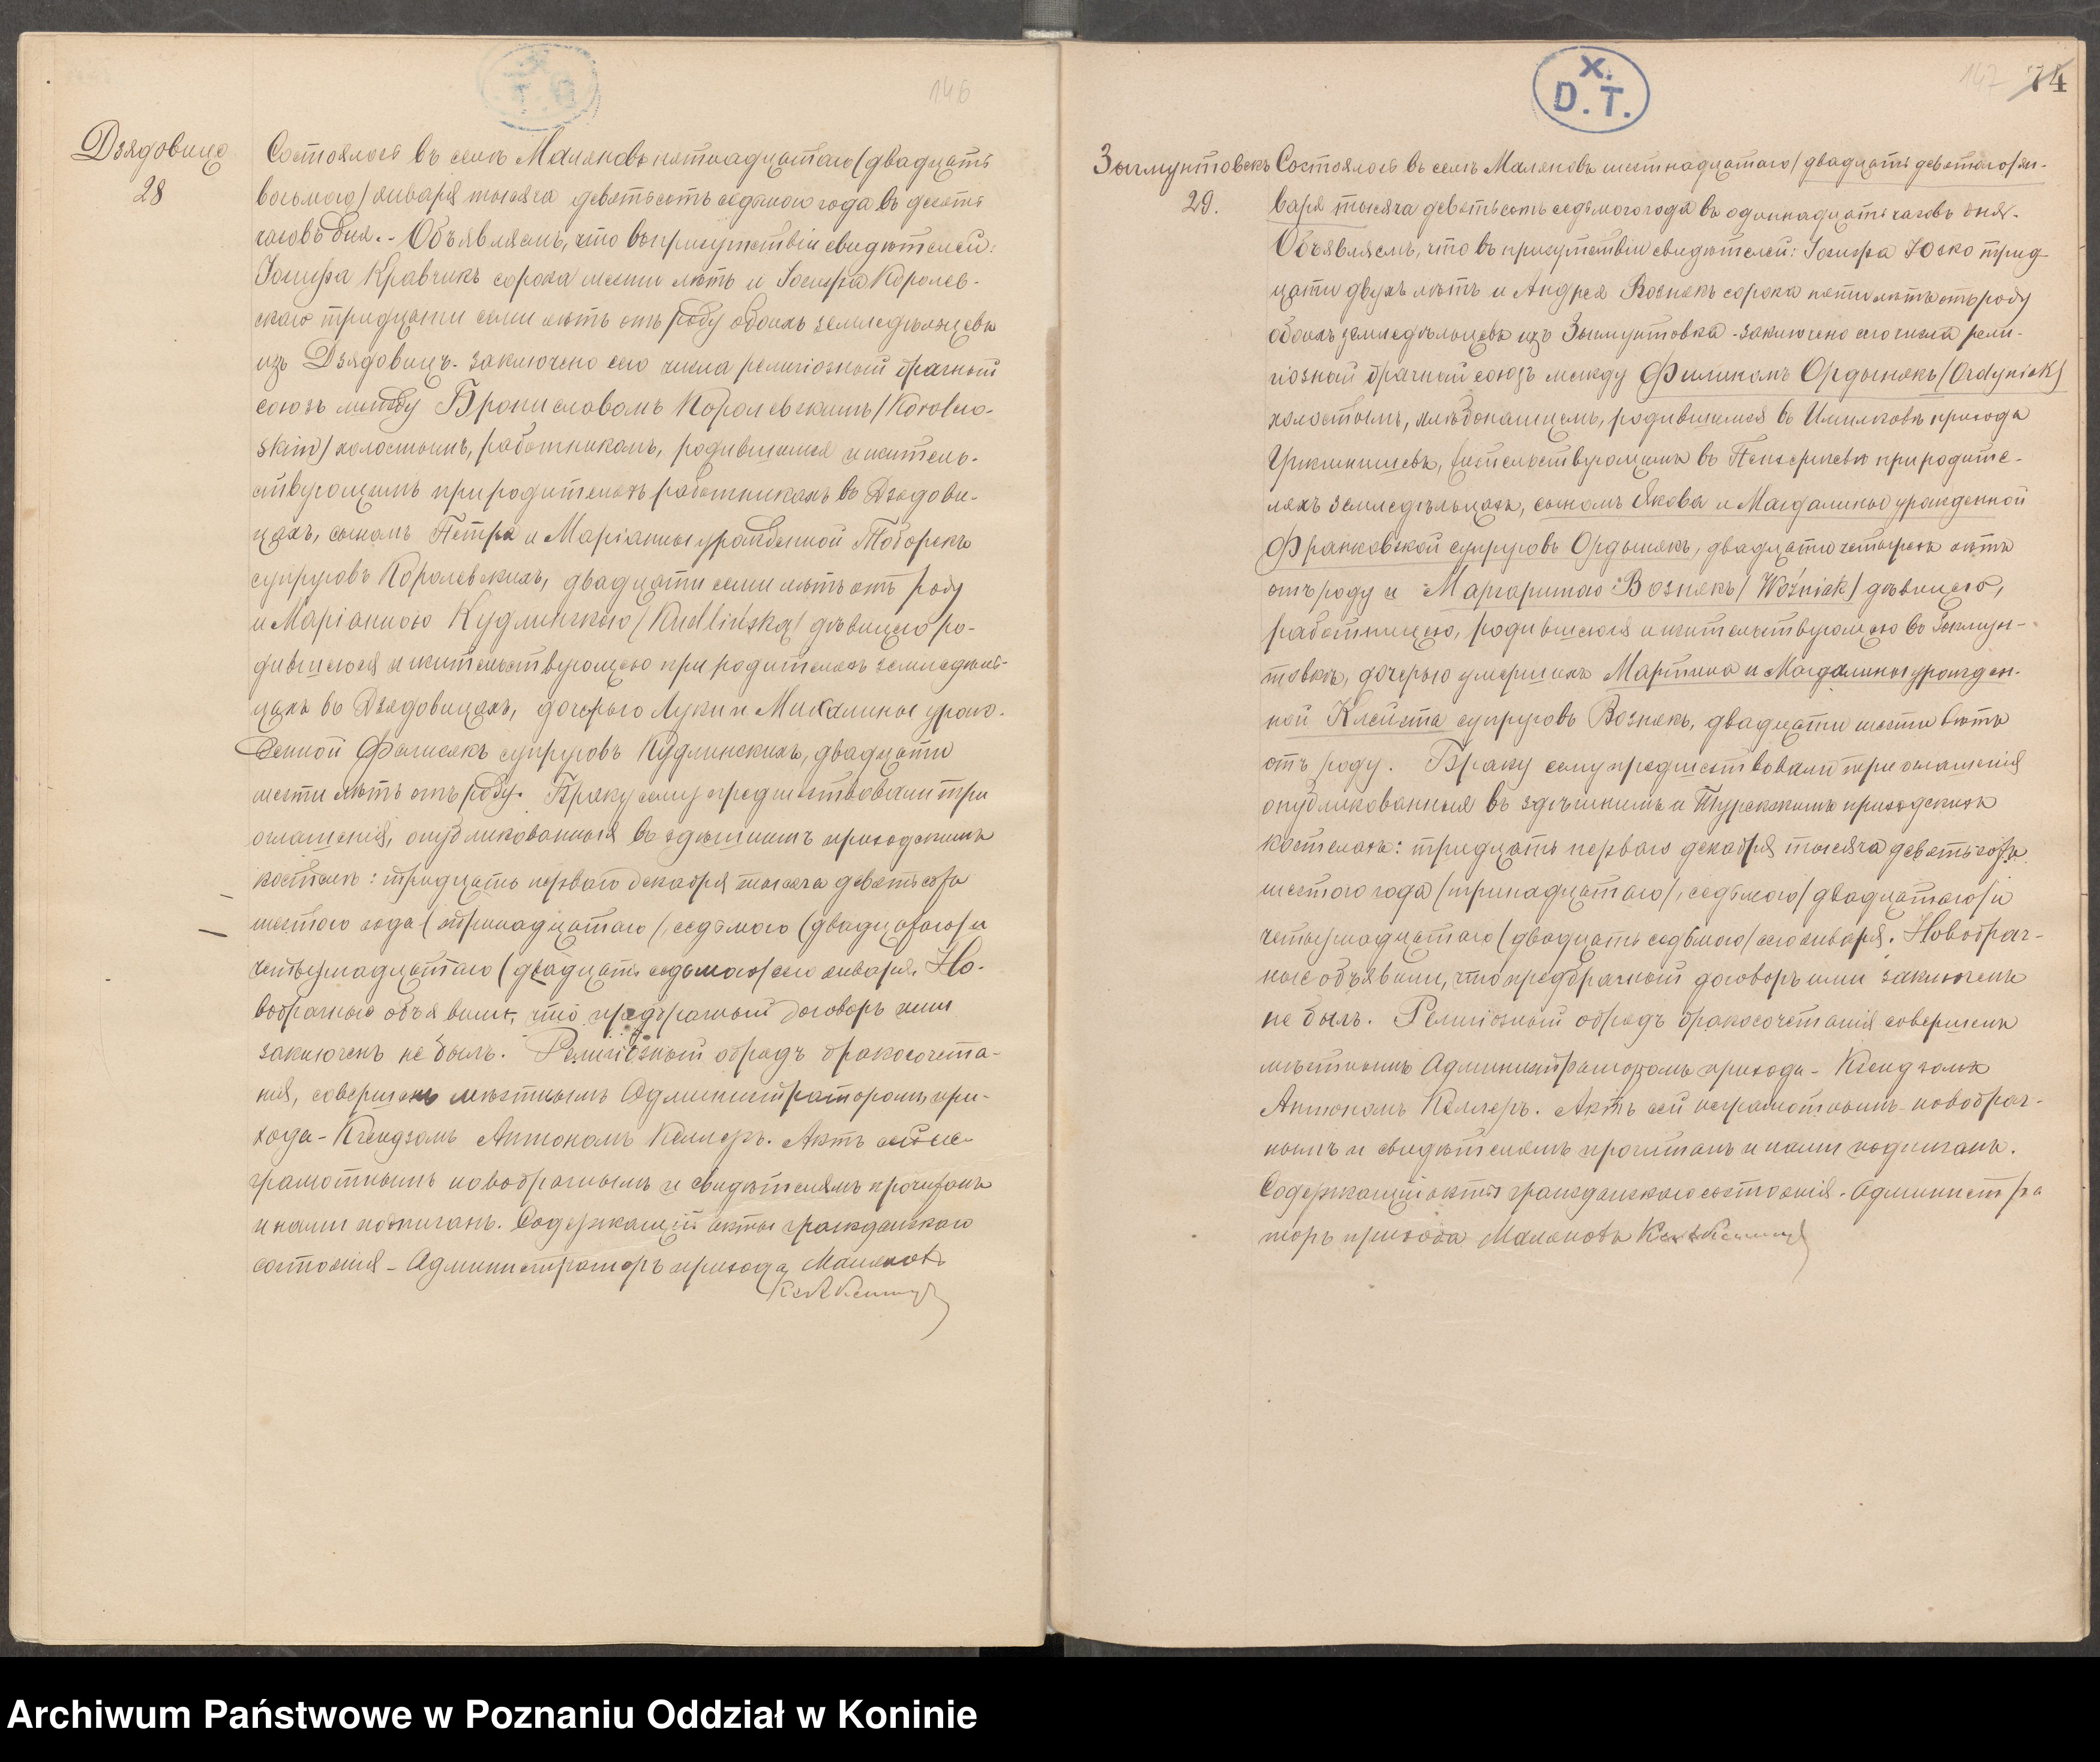 X.
D. T.
146
Дзядовице
28
Состоялось въ селѣ Маляновѣ пятнадцатаго (двадцать
восьмого) января тысяча девятьсотъ седьмого года въ десять
часовъ дня. - Объявляемъ, что въ присутствіи свидѣтелей:
Іосифа Кравчикъ сорока шести лѣтъ и Іосифа Королев-
скаго тридцати семи лѣтъ отъ роду обоихъ земледѣльцевъ
изъ Дзядовицъ - заключено сего числа религіозный брачный
союзъ между Брониславомъ Королевскимъ (Korolew-
skim) холостымъ, работникомъ, родившимся и житель-
ствующимъ при родителяхъ работникахъ въ Дзядови-
цахъ, сыномъ Петра и Маріанны урожденной Тоборекъ
супруговъ Королевскихъ, двадцати семи лѣтъ отъ роду
и Маріанною Кудлинскою (Kudlińską) дѣвицею ро-
дившеюся и жительствующею при родителяхъ земледѣль-
цахъ въ Дзядовицахъ, дочерью Луки и Михалины урож-
денной супруговъ Кудлинскихъ, двадцати
шести лѣтъ отъ роду. Браку сему предшествовали три
оглашенія, опубликованныя въ здѣшнемъ приходскомъ
костелѣ: тридцать перваго декабря тысяча девятьсотъ
шестого года (тринадцатаго), седьмого (двадцатаго) и
четырнадцатаго (двадцать седьмого) сего января. Но-
вобрачные объявили, что предбрачный договоръ ими
заключенъ не былъ. Религіозный обрядъ бракосочета-
нія, совершенъ мѣстнымъ Администраторомъ при-
хода - Ксендзомъ Антономъ Келлеръ. Актъ сей не-
грамотнымъ новобрачнымъ и свидѣтелямъ прочитанъ
и нами подписанъ. Содержащій акты гражданскаго
состоянія - Администраторъ прихода Маляновъ
X.
D. T.
147 74
Зыгмунтовекъ
29.
Состоялось въ селѣ Маляновѣ шестнадцатаго (двадцать девятаго) ян-
варя тысяча девятьсотъ седьмого года въ одиннадцать часовъ дня.
Объявляемъ, что въ присутствіи свидѣтелей: Іосифа Юско трид-
цати двухъ лѣтъ и Андрея Вознякъ сорока пяти лѣтъ отъ роду
обоихъ земледѣльцевъ изъ Зыгмунтовка - заключено сего числа рели-
гіозный брачный союзъ между Филипомъ Ордынякъ (Ordyniak)
холостымъ, хлѣбопашцемъ, родившимся въ прихода
жительствующимъ въ при родите-
ляхъ земледѣльцахъ, сыномъ Якова и Магдалины урожденной
Франковской супруговъ Ордынякъ, двадцати четырехъ лѣтъ
отъ роду и Маргаритою Вознякъ (Woźniak) дѣвицею,
работницею, родившеюся и жительствующею въ Зыгмун-
товкѣ, дочерью умершихъ Мартина и Магдалины урожден-
ной Клейста супруговъ Вознякъ, двадцати шести лѣтъ
отъ роду. Браку сему предшествовали три оглашенія
опубликованныя въ здѣшнемъ и Турекскомъ приходскихъ
костелахъ: тридцать перваго декабря тысяча девятьсотъ
шестого года (тринадцатаго), седьмого (двадцатаго) и
четырнадцатаго (двадцать седьмого) сего января. Новобрач-
ные объявили, что предбрачный договоръ ими заключенъ
не былъ. Религіозный обрядъ бракосочетанія совершенъ
мѣстнымъ Администраторомъ прихода - Ксендзомъ
Антономъ Келлеръ. Актъ сей неграмотнымъ новобрач-
нымъ и свидѣтелямъ прочитанъ и нами подписанъ.
Содержащій акты гражданскаго состоянія - Администра
торъ прихода Маляновъ
Archiwum Państwowe w Poznaniu Oddział w Koninie